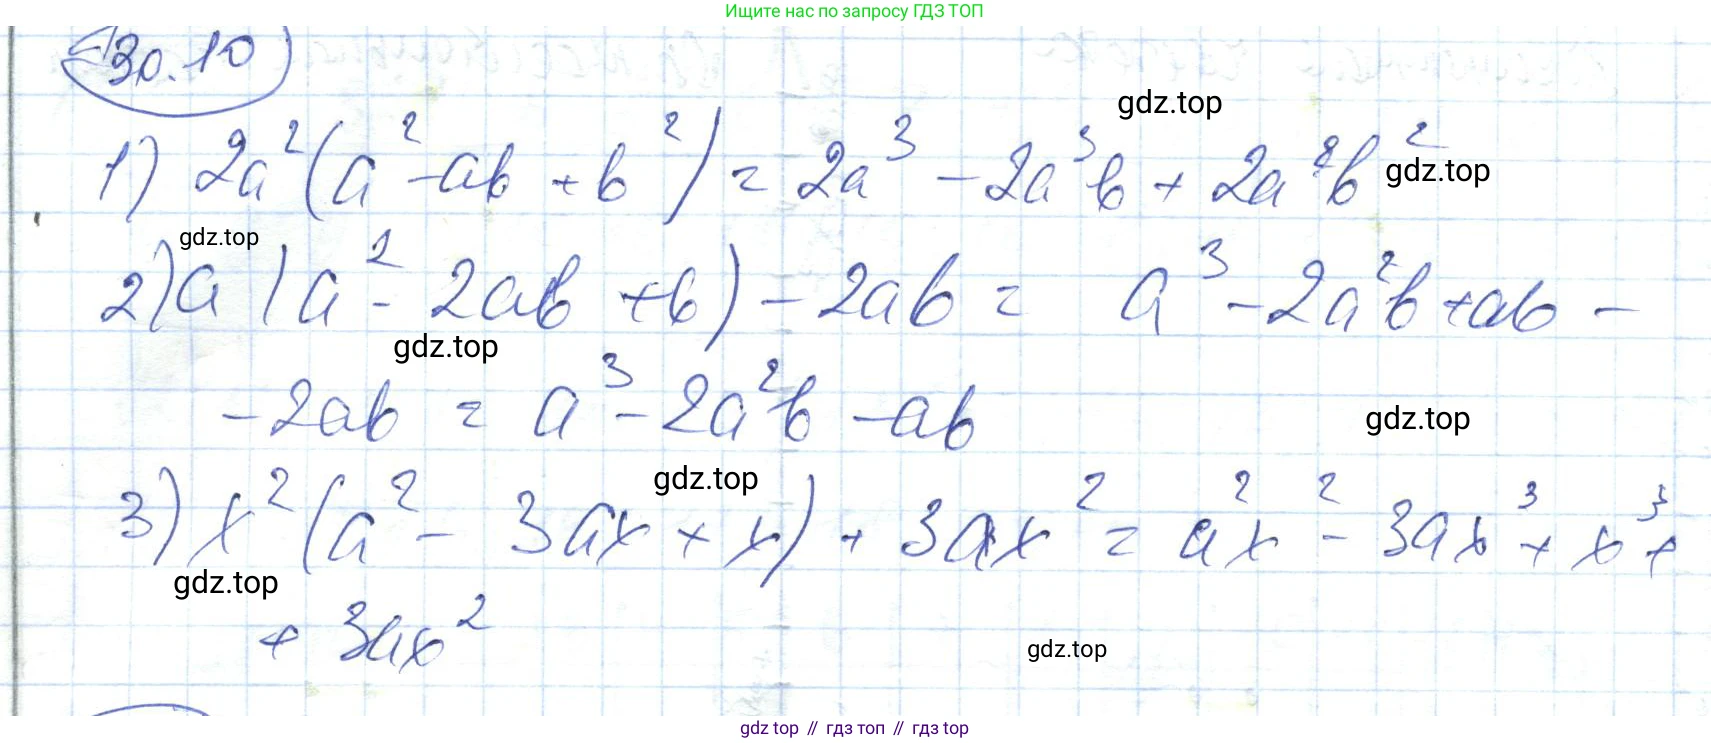 Ищите нас по запросу ГДЗ ТОП
30.10
gdz.top
1) 2a²(a² - ab + b²) = 2a³ - 2a³b + 2a²b²
gdz.top
gdz.top
2) a(a² - 2ab + b) - 2ab = a³ - 2a²b + ab -
gdz.top
- 2ab = a³ - 2a²b - ab
gdz.top
gdz.top
3) x²(a² - 3ax + x) + 3ax² = a²x² - 3ax³ + x³ +
gdz.top
+ 3ax²
gdz.top
gdz top // гдз топ // gdz top